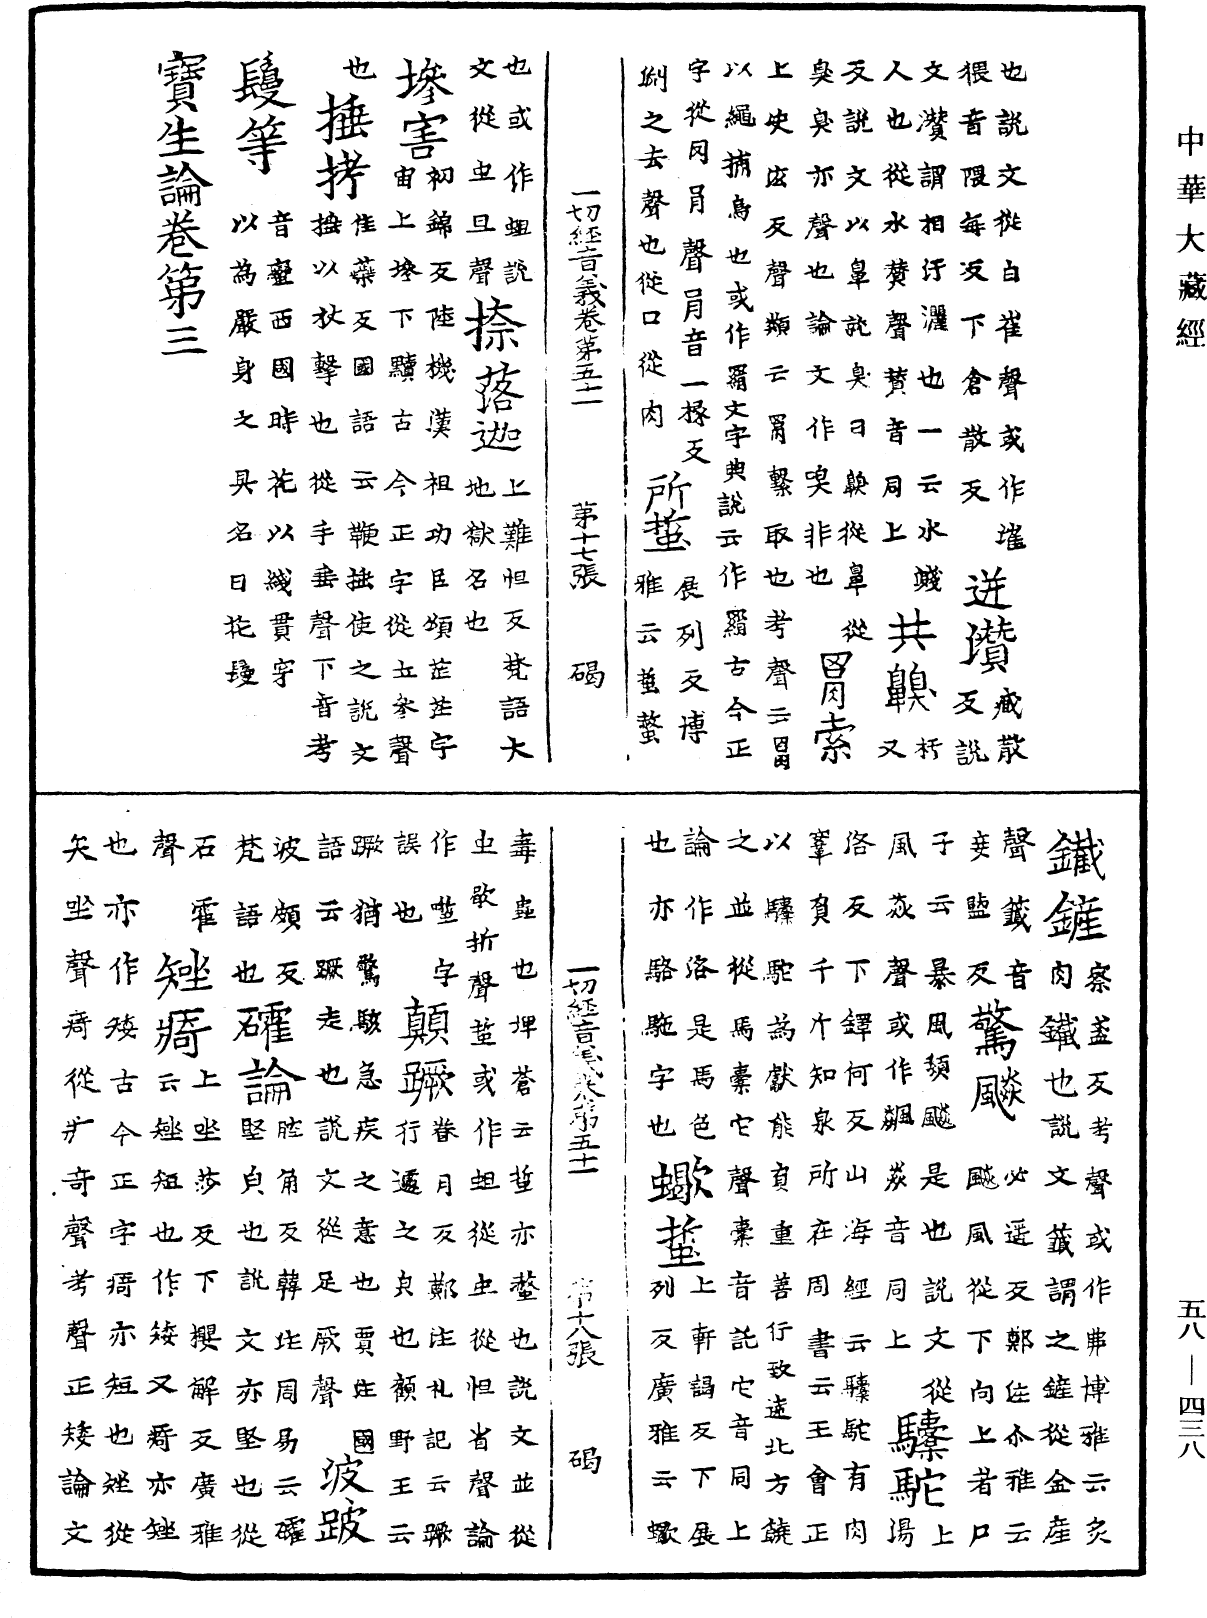 中華大藏經
也說文從白崔聲或作㩁 迸瓚 臧散
猥音隈每反下倉散反 反說
文瓚謂相汙灑也一云水濺 共鼿 朽
人也從水贊聲贊音同上 又
反說文以鼻說臭曰鼿從鼻從
臭臭亦聲也論文作嗅非也 罥索
上史泫反聲類云罥繫取也考聲云罥
以繩捕鳥也或作羂文字典說云作羂古今正
字從网肙聲肙音一掾反 所蜇 展列反博
捌之去聲也從口從肉 雅云蜇螫
一切經音義卷第五十一 第十七張 碣
也或作蛆說 捺落迦 上難怛反梵語大
文從虫旦聲 地獄名也
墋害 初錦反陸機漢祖功臣頌芒芒宇
宙上墋下黷古今正字從土參聲
也 捶拷 佳蘂反國語云鞭捶使之說文
捶以杖擊也從手垂聲下音考
鬘等 音蠻西國時花以綫貫穿
以為嚴身之具名曰花鬘
寶生論卷第三
鐵鏟 察盞反考聲或作弗博雅云灸
肉鐵也說文籤謂之鏟從金產
聲籤音 驚飈 必遥反鄭注尒雅云
妾鹽反 飈風從下向上者尸
子云暴風頹飈是也說文從 上
風猋聲或作飆猋音同上 驝駝 湯
洛反下鐸何反山海經云驝駝有肉
鞌負千斤知泉所在周書云王會正
以驝駝為獻能負重善行致遠北方饒
之並從馬橐它聲橐音託它音同上
論作洛是馬色 蠍蜇 上軒謁反下展
也亦駱駞字也 列反廣雅云蠍
一切經音義卷第五十一 第十八張 碣
毒蟲也埤蒼云蜇亦螫也說文並從
虫歇折聲蜇或作蛆從虫從怛省聲論
作𧧼字 顛蹶 眷月反鄭注礼記云蹶
誤也 行遽之皃也顧野王云
蹶猶驚駭急疾之意也賈注國
語云蹶走也說文從足厥聲 波跛
波頗反 確論 腔角反韓注周易云確
梵語也 堅皃也說文亦堅也從
石霍 矬㾨 上坐莎反下㰆解反廣雅
聲 云矬短也作矮又㾨亦矬
也亦作矮古今正字㾨亦短也矬從
矢坐聲㾨從疒奇聲考聲正矮論文
五八—四三八